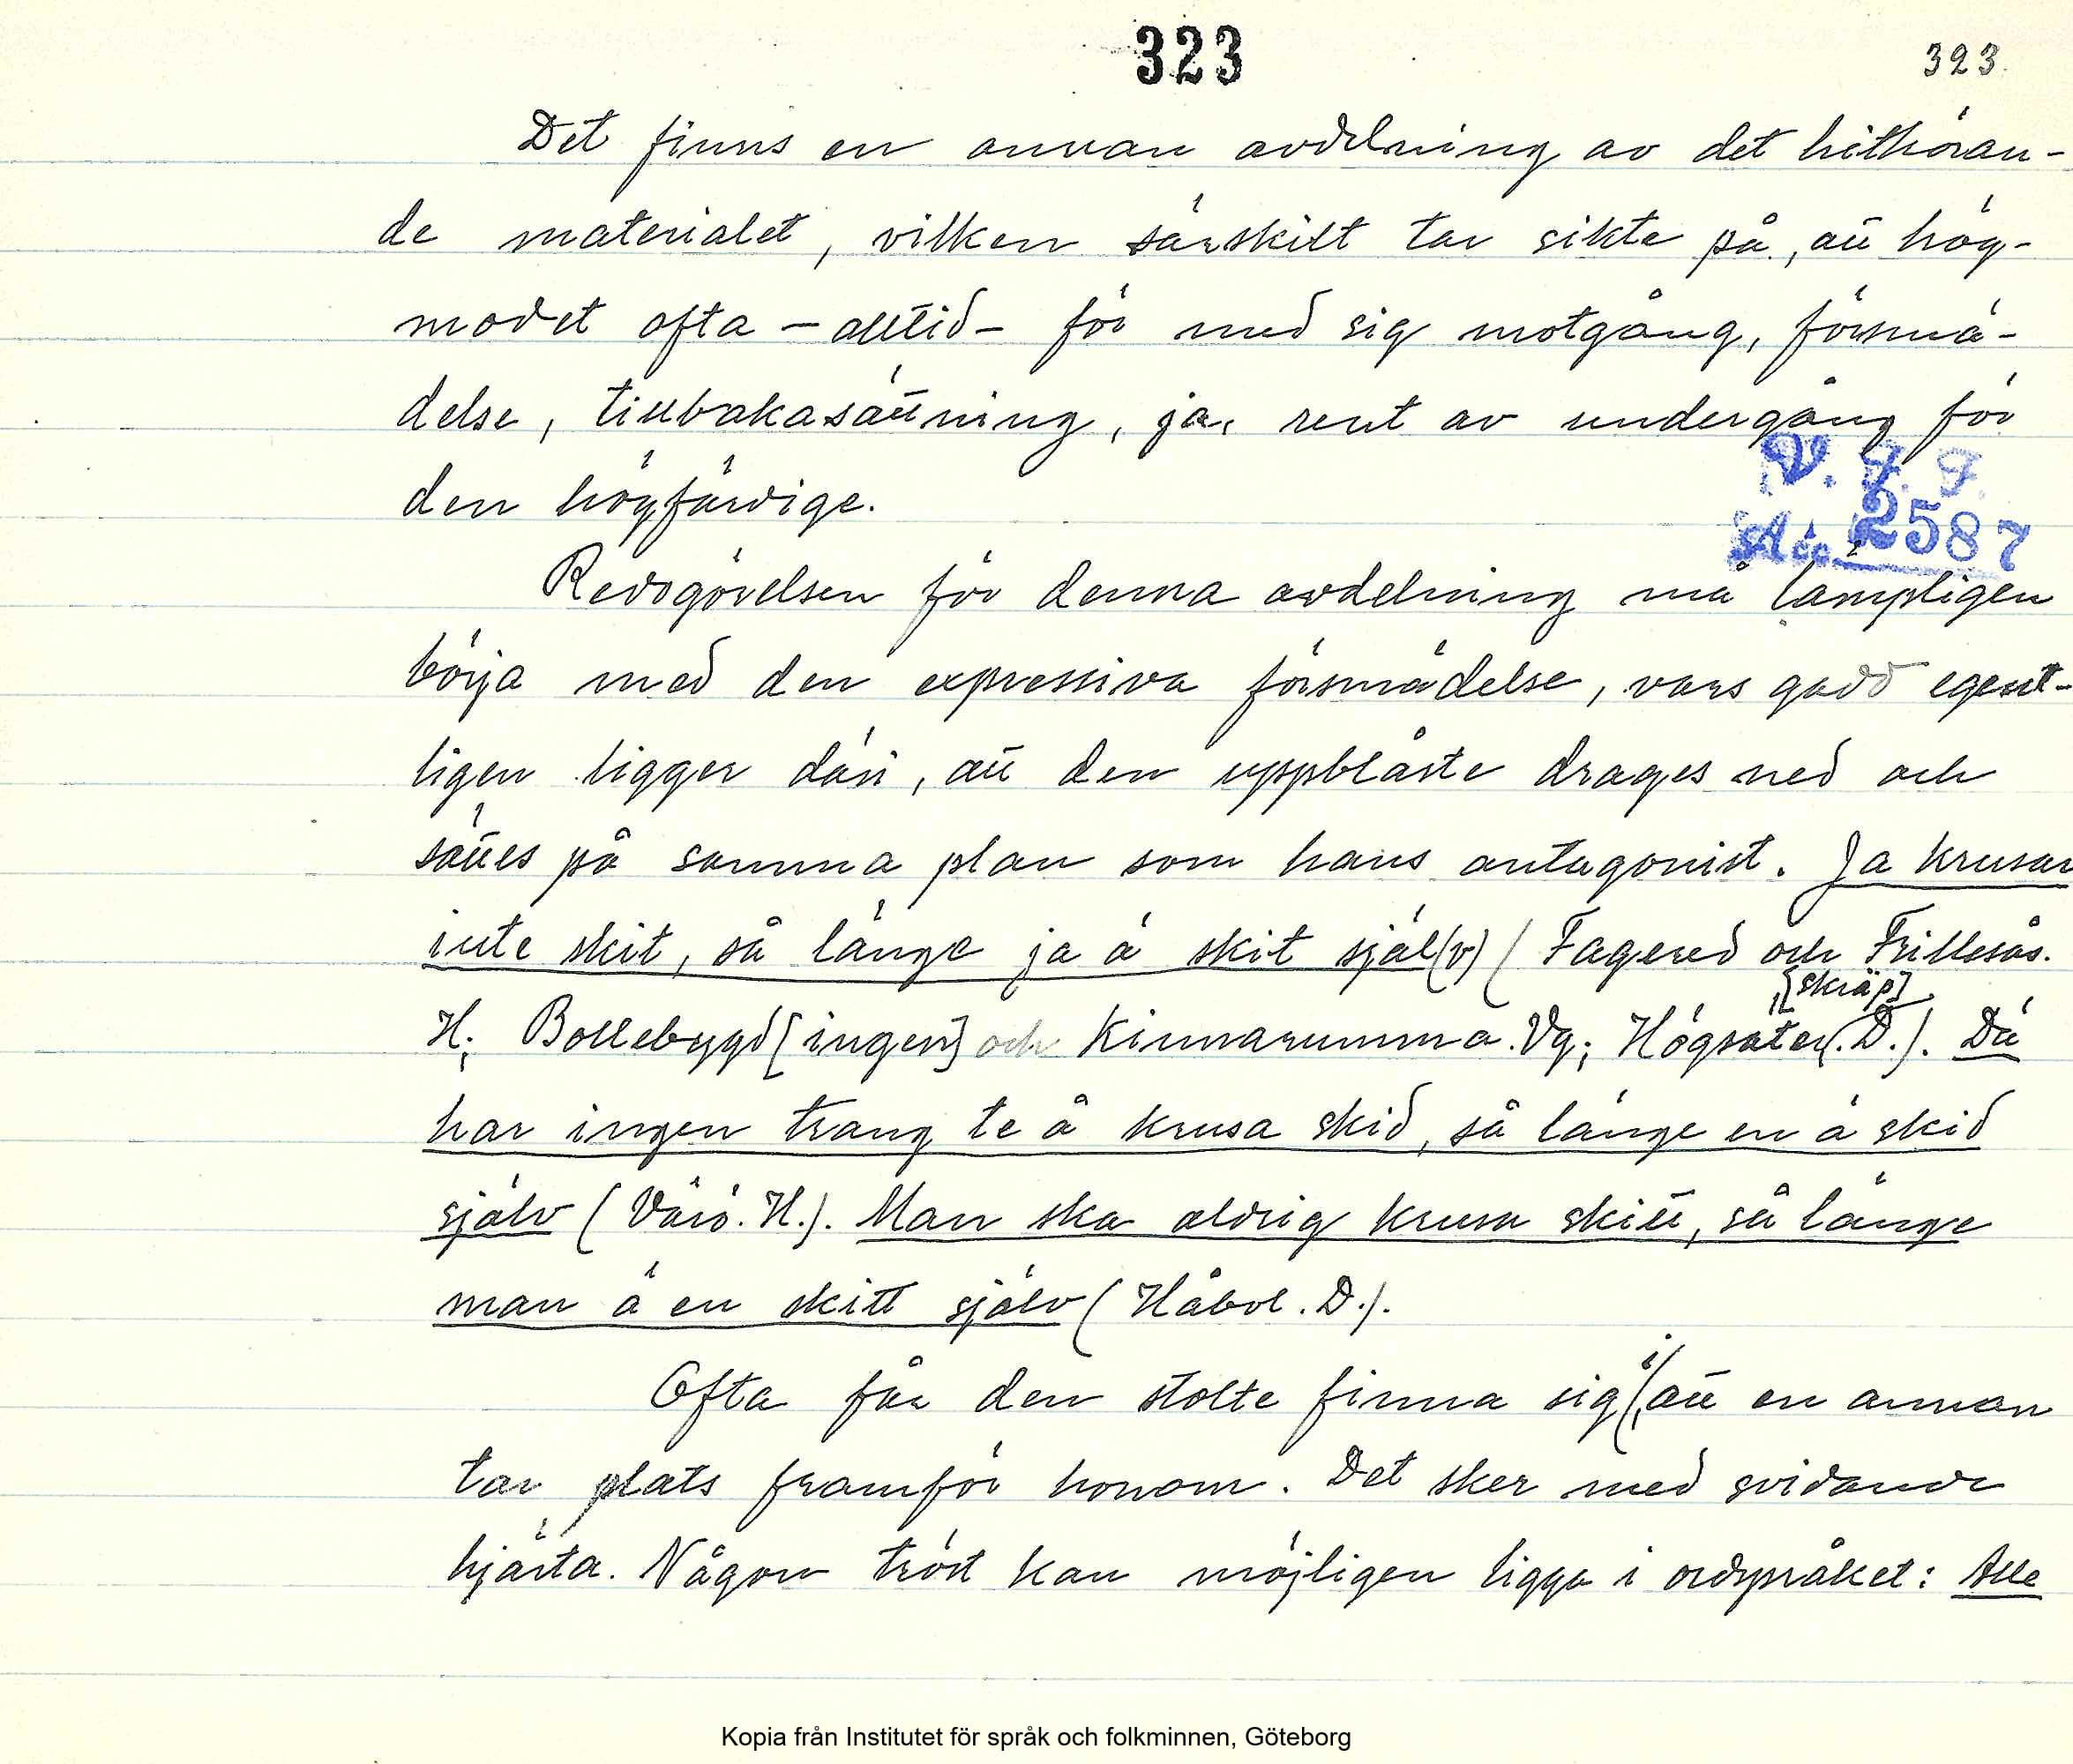 323
323.
Det finns en annan avdelning av det hithöran-
de materialet, vilken särskilt tar sikte på, att hög-
modet ofta – alltid – för med sig motgång, försmä-
delse, tillbakasättning, ja, rent av undergång för
den högfärdige.
V. F. F.
Acc. 2587
Redogörelsen för denna avdelning må lämpligen
börja med den expressiva försmädelse, vars gadd egent-
ligen ligger däri, att den uppblåste drages ned och
sättes på samma plan som hans antagonist. Ja krusar
inte skit, så länge ja ä skit själ(v) (Fagered och Frillesås.
H; Bollebygd [ingen] och Kinnarumma. Vg; Högsäter, [skräp] D.). Dä
har ingen trang te å krusa skid, så länge en ä skid
själv (Värö. H.). Man ska aldrig krusa skitt, så länge
man ä en skitt själv (Håbol. D.).
Ofta får den stolte finna sig i, att en annan
tar plats framför honom. Det sker med svidande
hjärta. Någon tröst kan möjligen ligga i ordspråket: Alle
Kopia från Institutet för språk och folkminnen, Göteborg